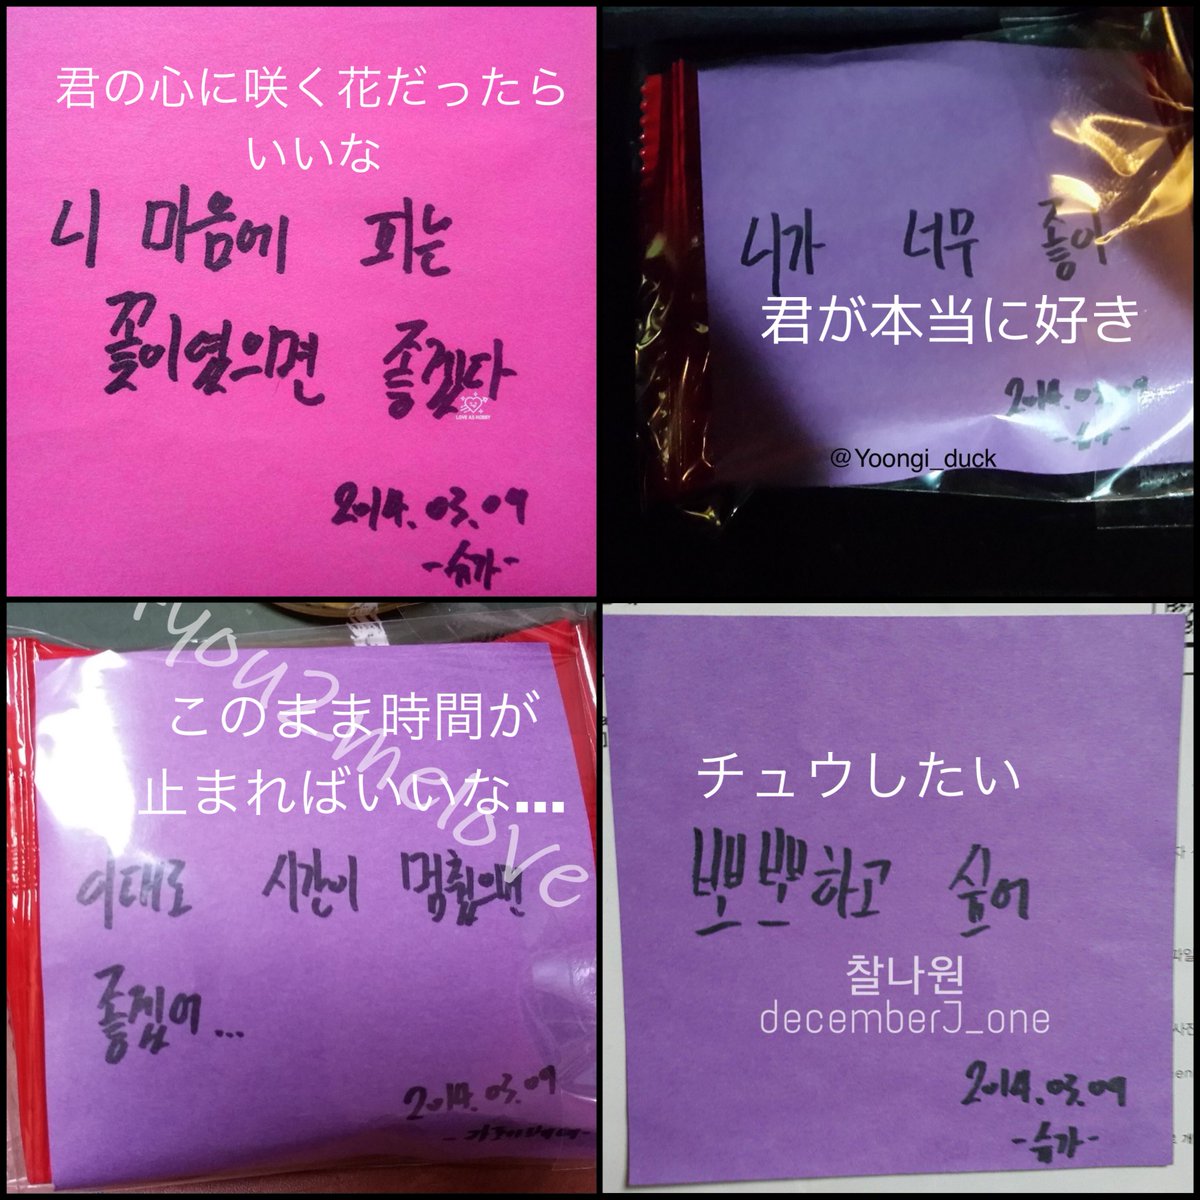 君の心に咲く花だったら
いいな
니 마음에 피는
꽃이였으면 좋겠다
LOVE AS HOBBY
2014.03.09
-슈가-
니가 너무 좋아
君が本当に好き
2014.03.09
-슈가-
@Yoongi_duck
you2melove
このまま時間が
止まればいいな...
이대로 시간이 멈췄으면
좋겠어...
2014.03.09
チュウしたい
뽀뽀하고 싶어
찰나원
decemberJ_one
2014.03.09
-슈가-